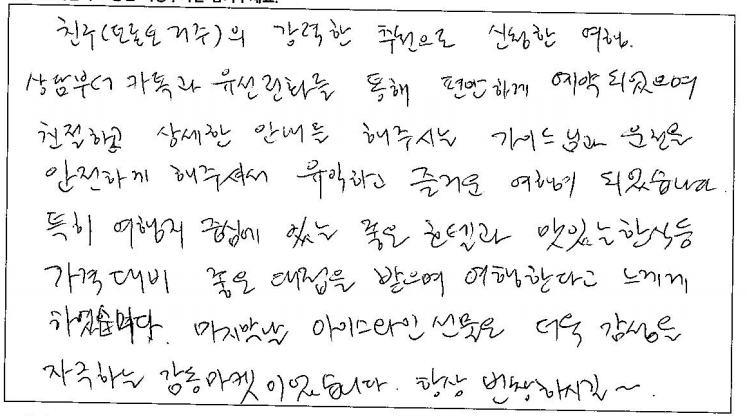 친구(토론토 거주)의 강력한 추천으로 신청한 여행.
상담부터 카톡과 유선전화를 통해 편안하게 예약 되었으며
친절하고 상세한 안내를 해주시는 가이드님과 운전을
안전하게 해주셔서 유익하고 즐거운 여행이 되었습니다.
특히 여행지 중심에 있는 좋은 호텔과 맛있는 한식등
가격대비 좋은 대접을 받으며 여행한다고 느끼게
하였습니다. 마지막날 아이스와인 선물은 더욱 감성을
자극하는 감동마켓이었습니다. 항상 번창하시길~.